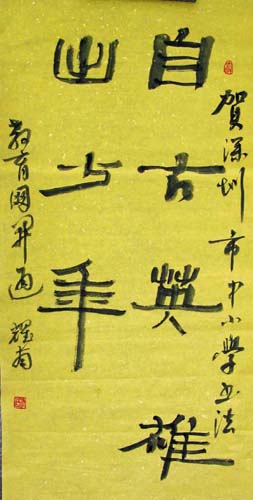 賀深圳市中小學書法
自古英雄
出少年
教育網開通 耀南